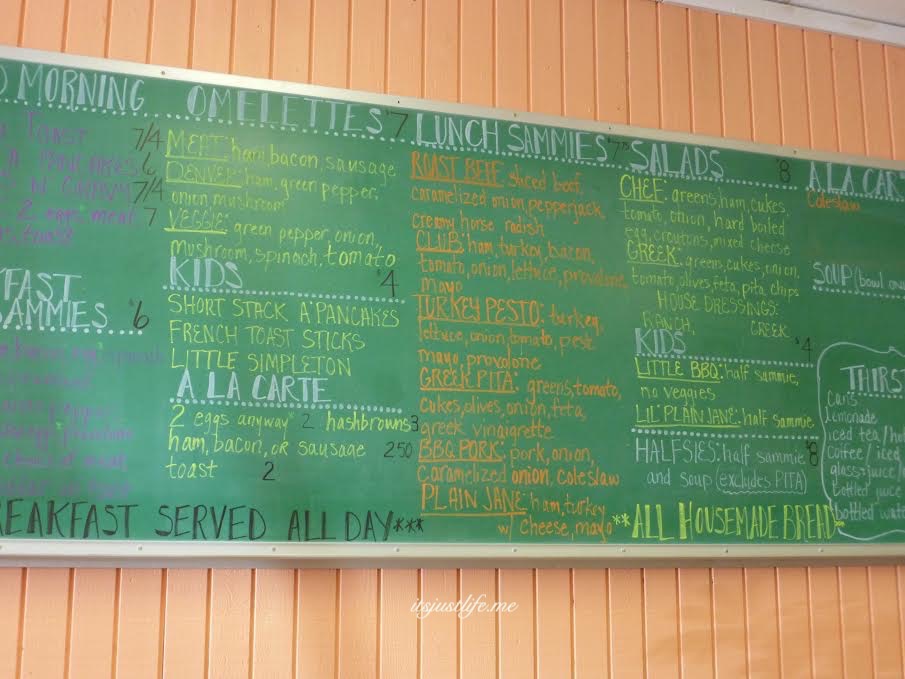 MORNING
TOAST 7/4
A PANCAKES 6
N GRAVY 7/4
2 eggs meat 7
toast
FAST
SAMMIES 6
OMELETTES 7
MEAT: ham, bacon, sausage
DENVER: ham, green pepper,
onion mushroom
VEGGIE: green pepper, onion,
mushroom, spinach, tomato
KIDS 4
SHORT STACK A'PANCAKES
FRENCH TOAST STICKS
LITTLE SIMPLETON
A LA CARTE
2 eggs anyway 2 hashbrowns 3
ham, bacon, or sausage 2.50
toast 2
LUNCH SAMMIES $7.75
ROAST BEEF: sliced beef,
caramelized onion, pepperjack,
creamy horse radish
CLUB: ham, turkey, bacon,
tomato, onion, lettuce, provolone
mayo
TURKEY PESTO: turkey,
lettuce, onion, tomato, pesto
mayo, provolone
GREEK PITA: greens, tomato,
cukes, olives, onion, feta,
greek vinaigrette
BBQ PORK: pork, onion,
caramelized onion, coleslaw
PLAIN JANE: ham, turkey
w/ cheese, mayo
SALADS $8
CHEF: greens, ham, cukes,
tomato, onion, hard boiled
egg, croutons, mixed cheese
GREEK: greens, cukes, onion,
tomato, olives, feta, pita, chips
HOUSE DRESSINGS:
RANCH, GREEK
KIDS $4
LITTLE BBQ: half sammie,
no veggies
LIL' PLAIN JANE: half sammie
HALFSIES: half sammie $8
and soup (excludes PITA)
A LA CAR
Coleslaw
SOUP (bowl
THIRST
cans
lemonade
iced tea/
coffee / iced
glass = juice/
bottled juice
bottled water
REAKFAST SERVED ALL DAY***
**ALL HOUSEMADE BREAD
itsjustlife.me